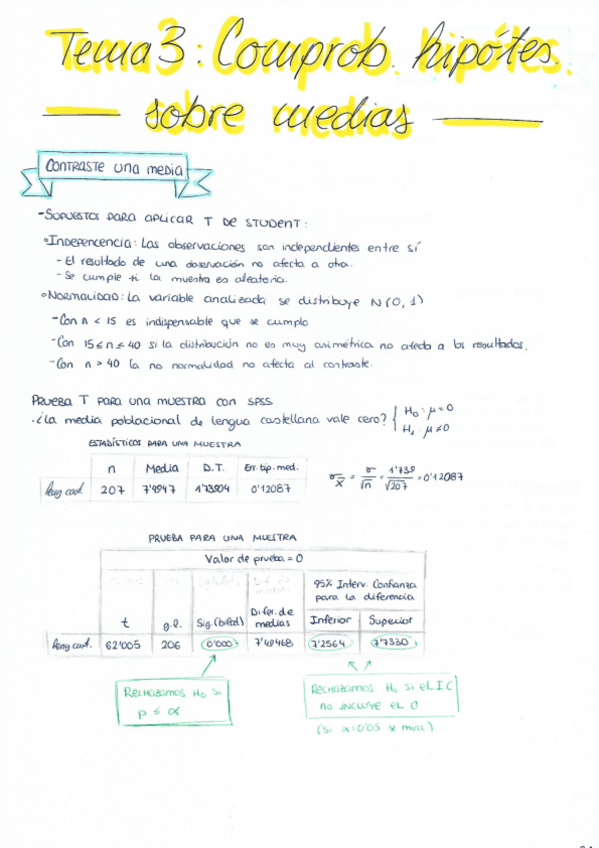 Tema 3: Comprob. hipótes.
sobre medias
CONTRASTE una media
- Supuestos para aplicar T de Student:
◦ Independencia: Las observaciones son independientes entre sí
- El resultado de una observación no afecta a otra.
- Se cumple si la muestra es aleatoria.
◦ Normalidad: La variable analizada se distribuye N(0,1)
- Con n < 15 es indispensable que se cumpla
- Con 15 ≤ n ≤ 40 si la distribución no es muy asimétrica no afecta a los resultados.
- Con n > 40 la no normalidad no afecta al contraste.
Prueba T para una muestra con SPSS
· ¿La media poblacional de lengua castellana vale cero? { H₀: μ = 0
H₁ μ ≠ 0
Estadísticos para una muestra
n Media D.T. Err. tip. med.
leng cast. 207 7'4947 1'73904 0'12087
σx̄ = σ/√n = 1'739/√207 = 0'12087
Prueba para una muestra
Valor de prueba = 0
95% Interv. Confianza
para la diferencia
t g.l. Sig. (bilat) Difer. de medias Inferior Superior
leng cast. 62'005 206 0'000 7'49468 7'2564 7'7330
Rechazamos H₀ si
p ≤ α
Rechazamos H₀ si el IC
no incluye el 0
(si α=0'05 se mira)